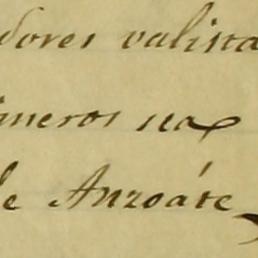 dores valista
imeros na
de Anzoáte